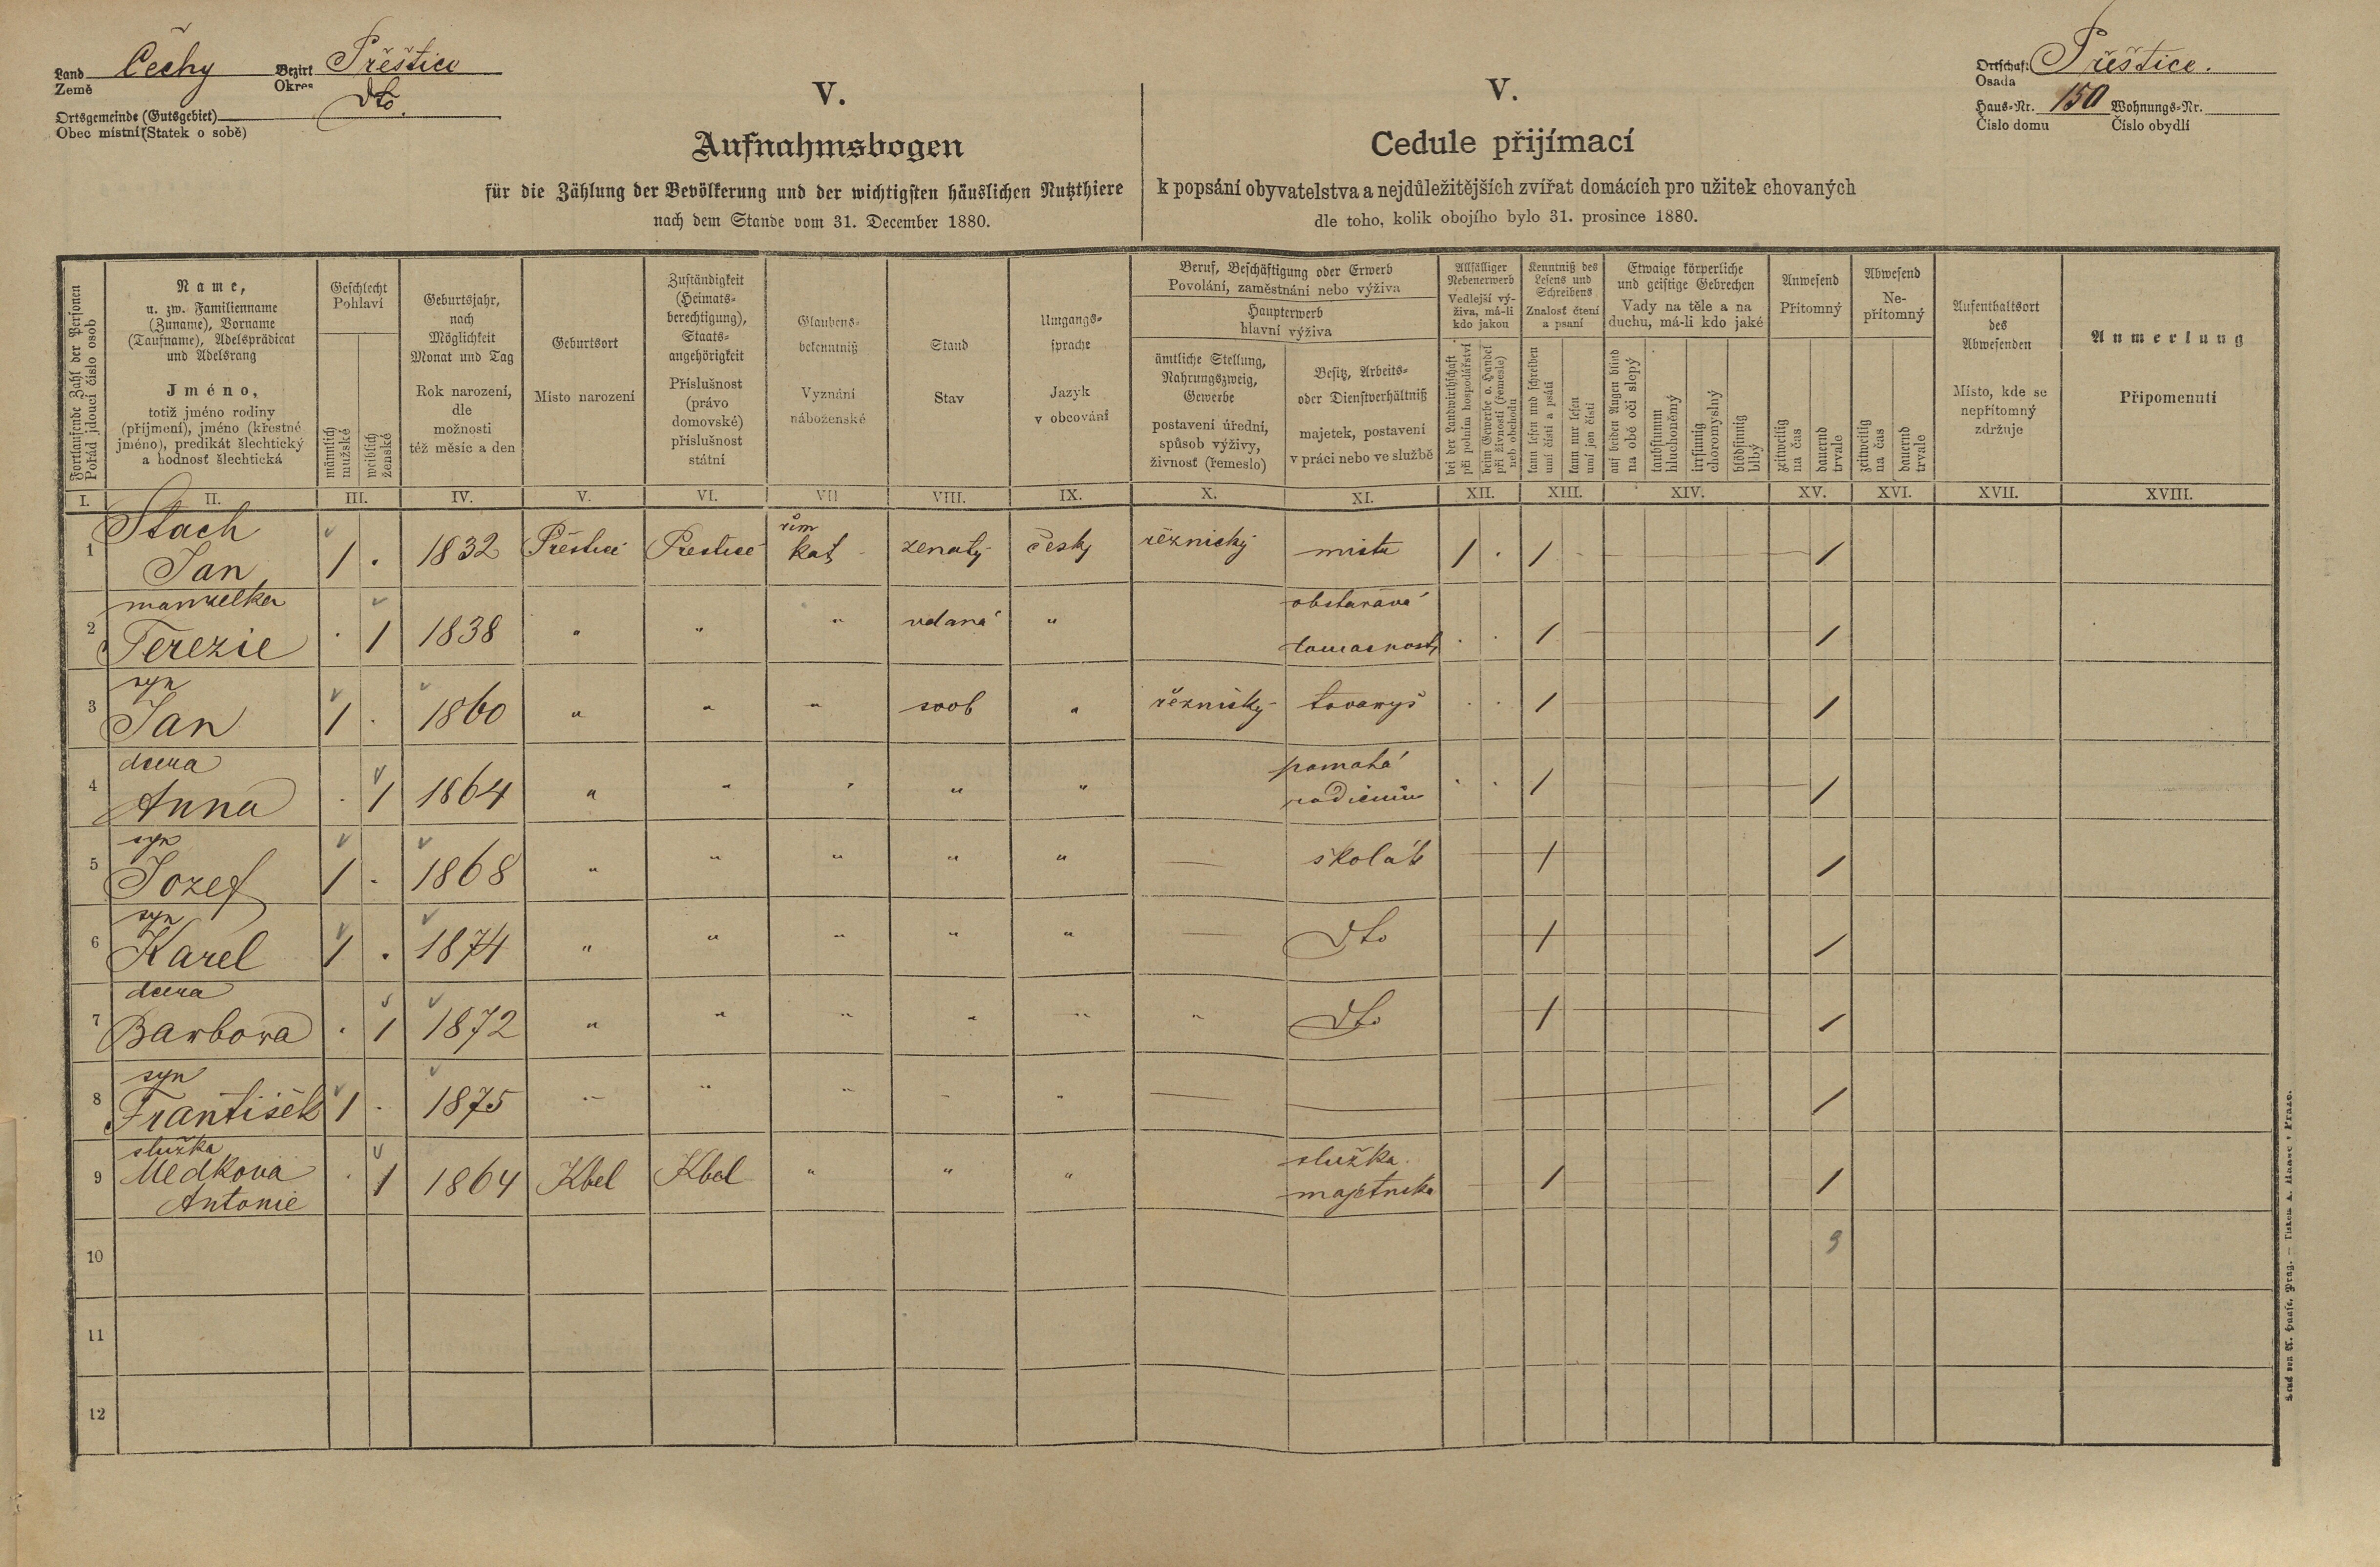 Land Čechy Bezirk Přeštice
Země Okres
Ortsgemeinde (Gutsgebiet) Dto.
Obec místní (Statek o sobě)
Ortschaft Přeštice.
Osada
Haus-Nr. 150 Wohnungs-Nr.
Číslo domu Číslo obydlí
V.
Aufnahmsbogen
für die Zählung der Bevölkerung und der wichtigsten häuslichen Nutzthiere
nach dem Stande vom 31. December 1880.
V.
Cedule přijímací
k popsání obyvatelstva a nejdůležitějších zvířat domácích pro užitek chovaných
dle toho, kolik obojího bylo 31. prosince 1880.
Fortlaufende Zahl der Personen
Pořád jdoucí číslo osob
Name,
u. zw. Familienname
(Zuname), Vorname
(Taufname), Adelsprädicat
und Adelsrang
Jméno,
totiž jméno rodiny
(příjmení), jméno (křestné
jméno), predikát šlechtický
a hodnosť šlechtická
Geschlecht
Pohlaví
männlich
mužské
weiblich
ženské
Geburtsjahr,
nach
Möglichkeit
Monat und Tag
Rok narození,
dle
možnosti
též měsíc a den
Geburtsort
Místo narození
Zuständigkeit
(Heimats-
berechtigung),
Staats-
angehörigkeit
Příslušnost
(právo
domovské)
příslušnost
státní
Glaubens-
bekenntniß
Vyznání
náboženské
Stand
Stav
Umgangs-
sprache
Jazyk
v obcování
Beruf, Beschäftigung oder Erwerb
Povolání, zaměstnání nebo výživa
Haupterwerb
hlavní výživa
ämtliche Stellung,
Nahrungszweig,
Gewerbe
postavení úřední,
spůsob výživy,
živnosť (řemeslo)
Besitz, Arbeits-
oder Dienstverhältniß
majetek, postavení
v práci nebo ve službě
Allfälliger
Nebenerwerb
Vedlejší vý-
živa, má-li
kdo jakou
bei der Landwirthschaft
při polním hospodářství
beim Gewerbe o. Handel
při živnosti (řemesle)
neb obchodu
Kenntniß des
Lesens und
Schreibens
Znalosť čtení
a psaní
kann lesen und schreiben
umí čísti a psáti
kann nur lesen
umí jen čísti
Etwaige körperliche
und geistige Gebrechen
Vady na těle a na
duchu, má-li kdo jaké
auf beiden Augen blind
na obě oči slepý
taubstumm
hluchoněmý
irrsinnig
choromyslný
blödsinnig
blbý
Anwesend
Přítomný
zeitweilig
na čas
dauernd
trvale
Abwesend
Ne-
přítomný
zeitweilig
na čas
dauernd
trvale
Aufenthaltsort
des
Abwesenden
Místo, kde se
nepřítomný
zdržuje
Anmerkung
Připomenutí
I. II. III. IV. V. VI. VII VIII. IX. X. XI. XII. XIII. XIV. XV. XVI. XVII. XVIII.
Stach
1 Jan 1 . 1832 Přeštice Prestice řím kat. ženatý česky řéznický mistr 1 . 1 1
manzelka
2 Terezie . 1 1838 " " " vdaná " obstarává . . 1 1
syn
3 Jan 1 . 1860 " " " svob " řéznický tovaryš . . 1 1
dcera
4 Anna . 1 1864 " " " " " pomahá rodičům . . 1 1
syn
5 Jozef 1 . 1868 " " " " " — školák 1 1
syn
6 Karel 1 . 1874 " " " " " — Dto 1 1
dcera
7 Barbora . 1 1872 " " " " " " Dto 1 1
syn
8 František 1 . 1875 " " " " " — — 1
služka
9 Medkova . 1 1864 Kbel Kbel " " " služka 1 1
Antonie
10 9
11
12